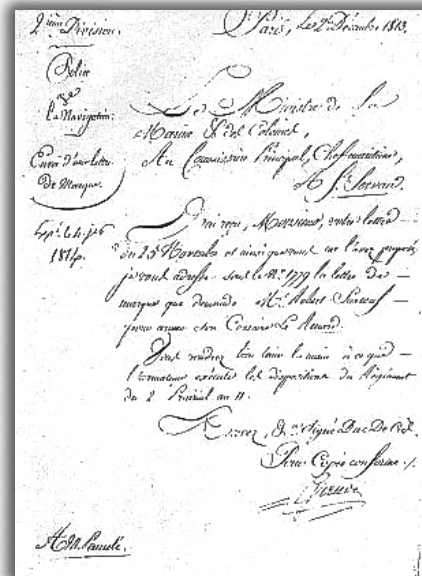 2ième Division.
Police
de
la Navigation.
Envoi d'une lettre
De Marque.
1814.
Paris, Le 2 Décembre 1813.
Le Ministre de la
Marine & des Colonies,
Au Commissaire Principal, Chef maritime,
A St. Servand.
J'ai reçu, Monsieur, votre lettre
du 25 Novembre et ainsi que vous me l'avez proposé
je vous adresse sous le No. 1779 la lettre de
marque que demande Mr. Robert Surcouf
pour armer son Corsaire Le Renard.
Vous voudrez bien tenir la main à ce que
l'armateur exécute les dispositions du Règlement
du 2 Prairial an 11.
Recevez, &a. Signé Duc De
Pour Copie conforme ./.